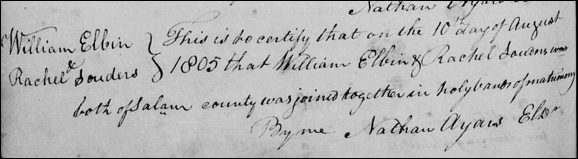 Nathan Ayars
William Elbin & Rachel Souders
This is to certify that on the 10th day of August
1805 that William Elbin & Rachel Souders was
both of Salam county was joined together in holy bands of matrimony
By me Nathan Ayars Eldr